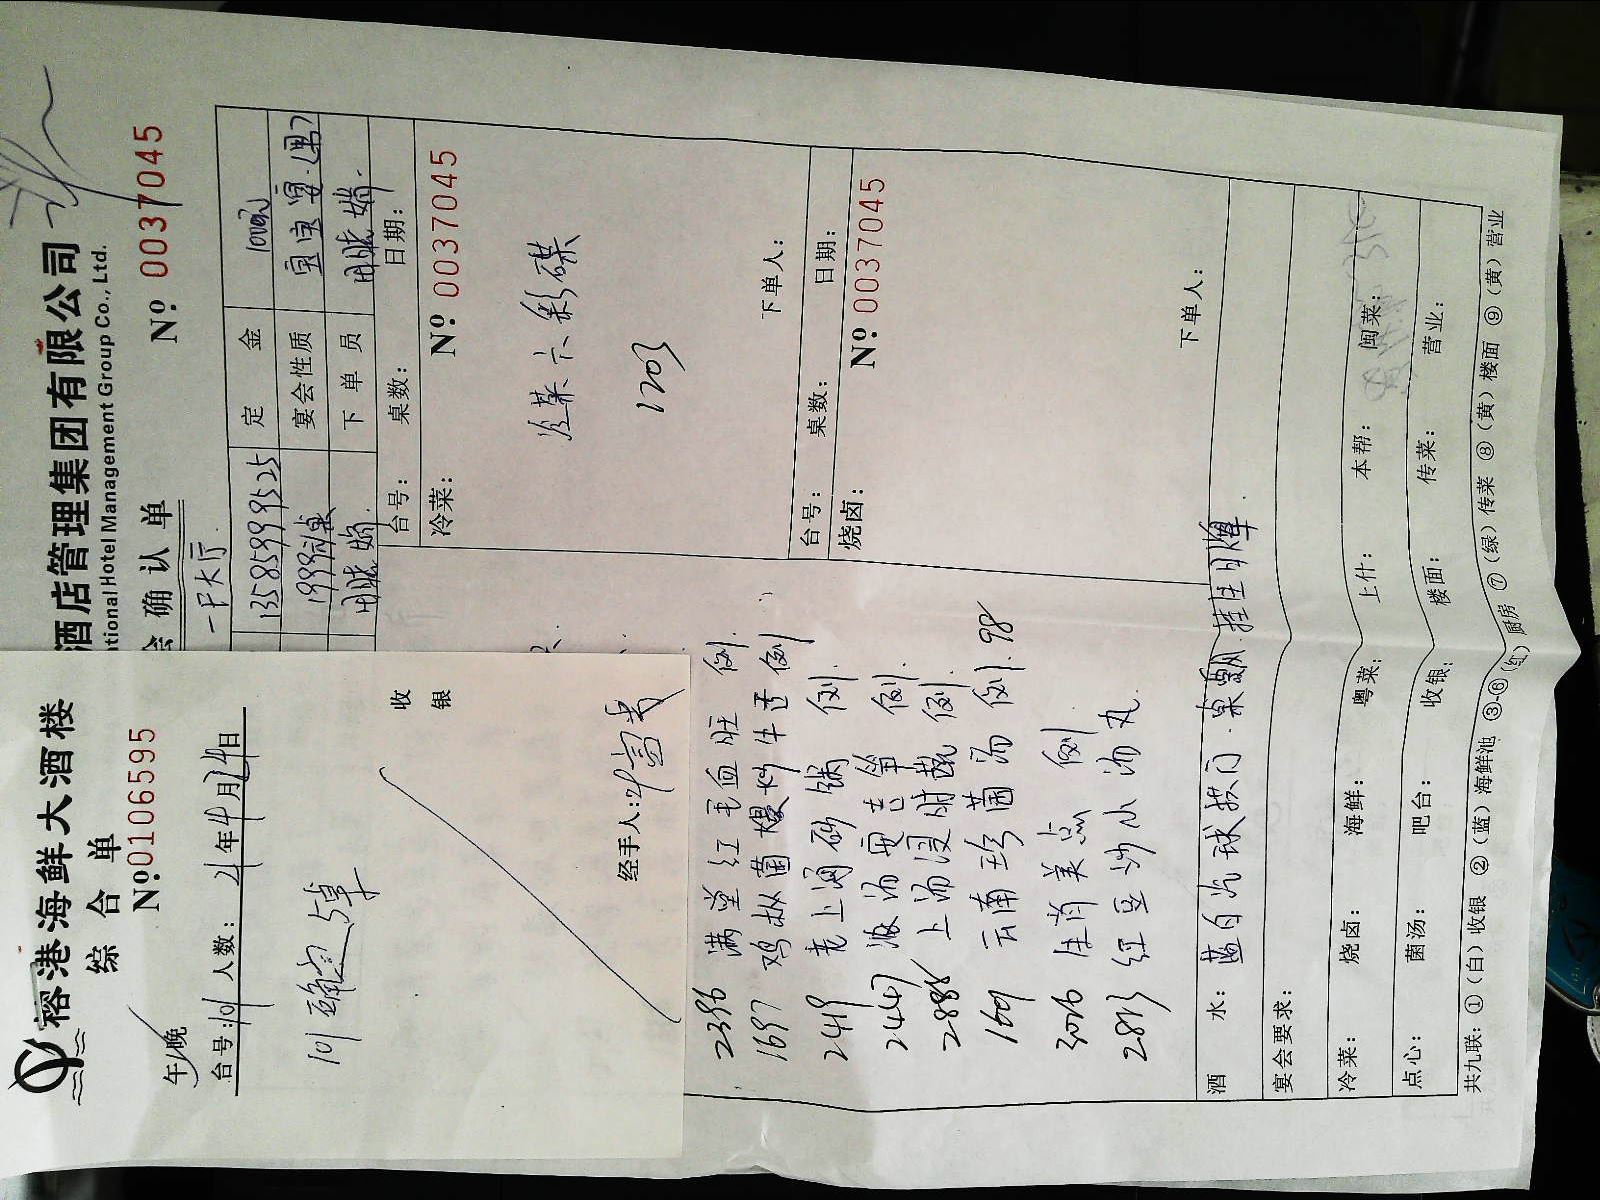 榕港海鲜大酒楼
综合单
№0106595
午/晚
台号:101 人数: 21年4月24日
收银
经手人:
酒店管理集团有限公司
ational Hotel Management Group Co., Ltd.
会确认单
№ 0037045
一F大厅
13585999525 定金 1000元
1999元/桌 宴会性质 宝宝宴(男)
下单员
台号: 桌数: 日期:
冷菜: № 0037045
冷菜六彩碟
1203
下单人:
台号: 桌数: 日期:
烧卤: № 0037045
下单人:
2396 满堂红毛血旺 例
1697 鸡枞菌爆炒牛 例
2419 老上海砂锅 例
2447 例
2888 上汤浸时蔬 例
1601 云南珍菌汤 例 98
3026 生肖美点 例
2813 红豆沙小汤丸
酒水: 蓝白气球拱门
宴会要求:
冷菜: 烧卤: 海鲜: 粤菜: 上什: 本帮: 闽菜:
点心: 菌汤: 吧台: 收银: 楼面: 传菜: 营业:
共九联:①(白)收银 ②(蓝)海鲜池 ③-⑥(红)厨房 ⑦(绿)传菜 ⑧(黄)楼面 ⑨(黄)营业